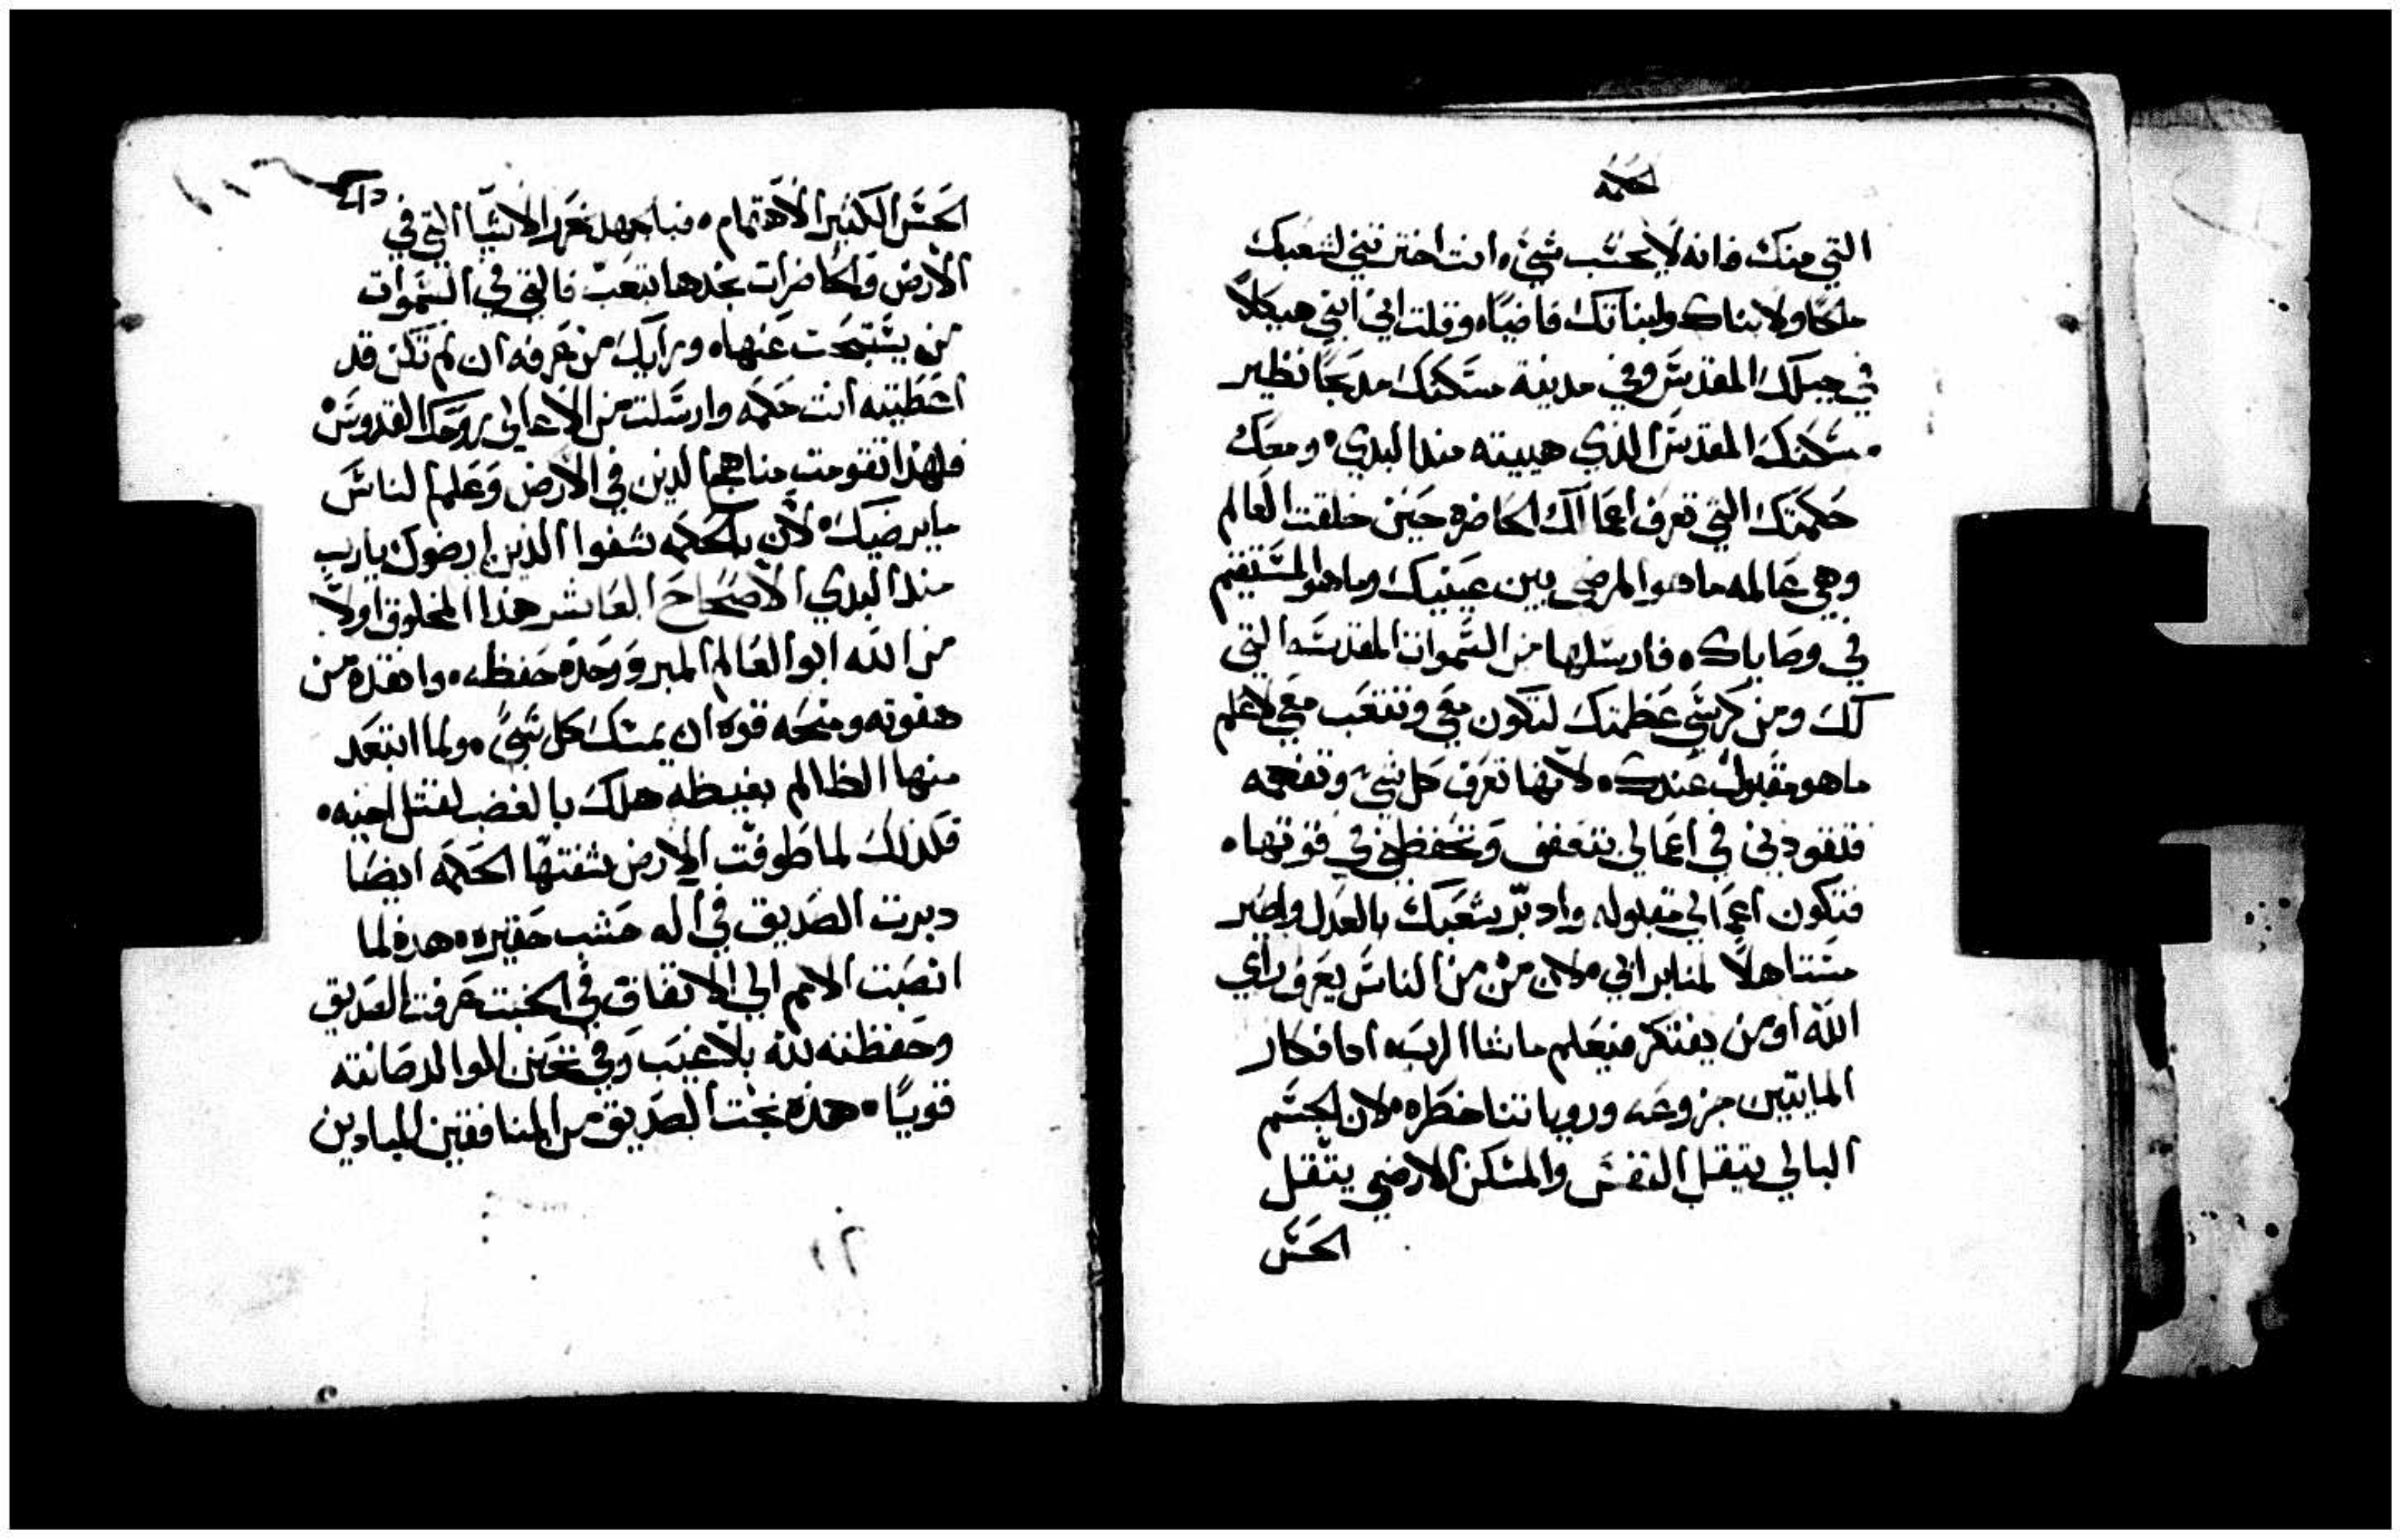 الحكمه
التي منك فانه لا يحسب شي. انت اخترتني لشعبك
ملكا ولابناك ولبناتك قاضيًا. وقلت اني ابني هيكلاً
في جبلك المقدس وفي مدينة مسكنك مدبحًا نظير
مسكنك المقدس الذي هييته منذ البدي. ومعك
حكمتك التي تعرف اعمالك الحاضره حين خلقت العالم
وهي عالمه ما هو المرضي بين عينيك وما هو المستقيم
في وصاياك. فارسلها من السموات المقدسه التي
لك ومن كرسي عظمتك لتكون معي وتتعب معي لاعلم
ما هو مقبول عندك. لانها تعرف كل شي وتفهمه
فتقودني في اعمالي بتعفف وتحفظني في قوتها.
فتكون اعمالي مقبوله وادبّر شعبك بالعدل واصير
مستاهلاً لمنابر ابي. لان من من الناس يعرف راي
الله او من يفتكر فيعلم ما شا الرب. اما افكار
المايتين جزوعه وروياتنا خطره. لان الجسم
البالي يتقل النفس والمسكن الارضي يتقل
الحس
الحس الكثير الاهتمام. فبالجهد نحزر الاشيا التي في
الارض والحاضرات نجدها بتعب فالتي في السموات
من يستبحث عنها. ورايك من عرفه ان لم تكن قد
اعطيته انت حكمه وارسلت من الاعالي روحك القدوس
فلهذا تقومت مناهج الذين في الارض وعلم الناس
ما يرضيك. لان بالحكمه شفوا الذين ارضوك يا رب
منذ البدي الاصحاح العاشر هذا المخلوق اولاً
من الله ابو العالم المبرو وحده حفظه. وانقده من
هفوته ومنحه قوه ان يمسك كل شي. ولما ابتعد
منها الظالم بغيظه هلك بالغضب لقتل اخيه.
فلذلك لما طوفت الارض شفتها الحكمه ايضا
دبرت الصديق في اله خشب حقيره. هده لما
انصبت الامم الي الاتفاق في الخبث عرفت الصديق
وحفظته لله بلا عيب وفي تحنن الوالد صانته
قويًا. هده نجت الصديق من المنافقين المبادين